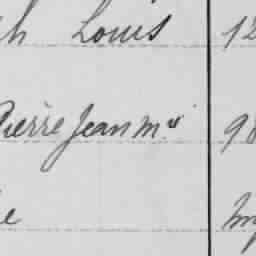 h Louis 12
Pierre Jean M.ie 98
e